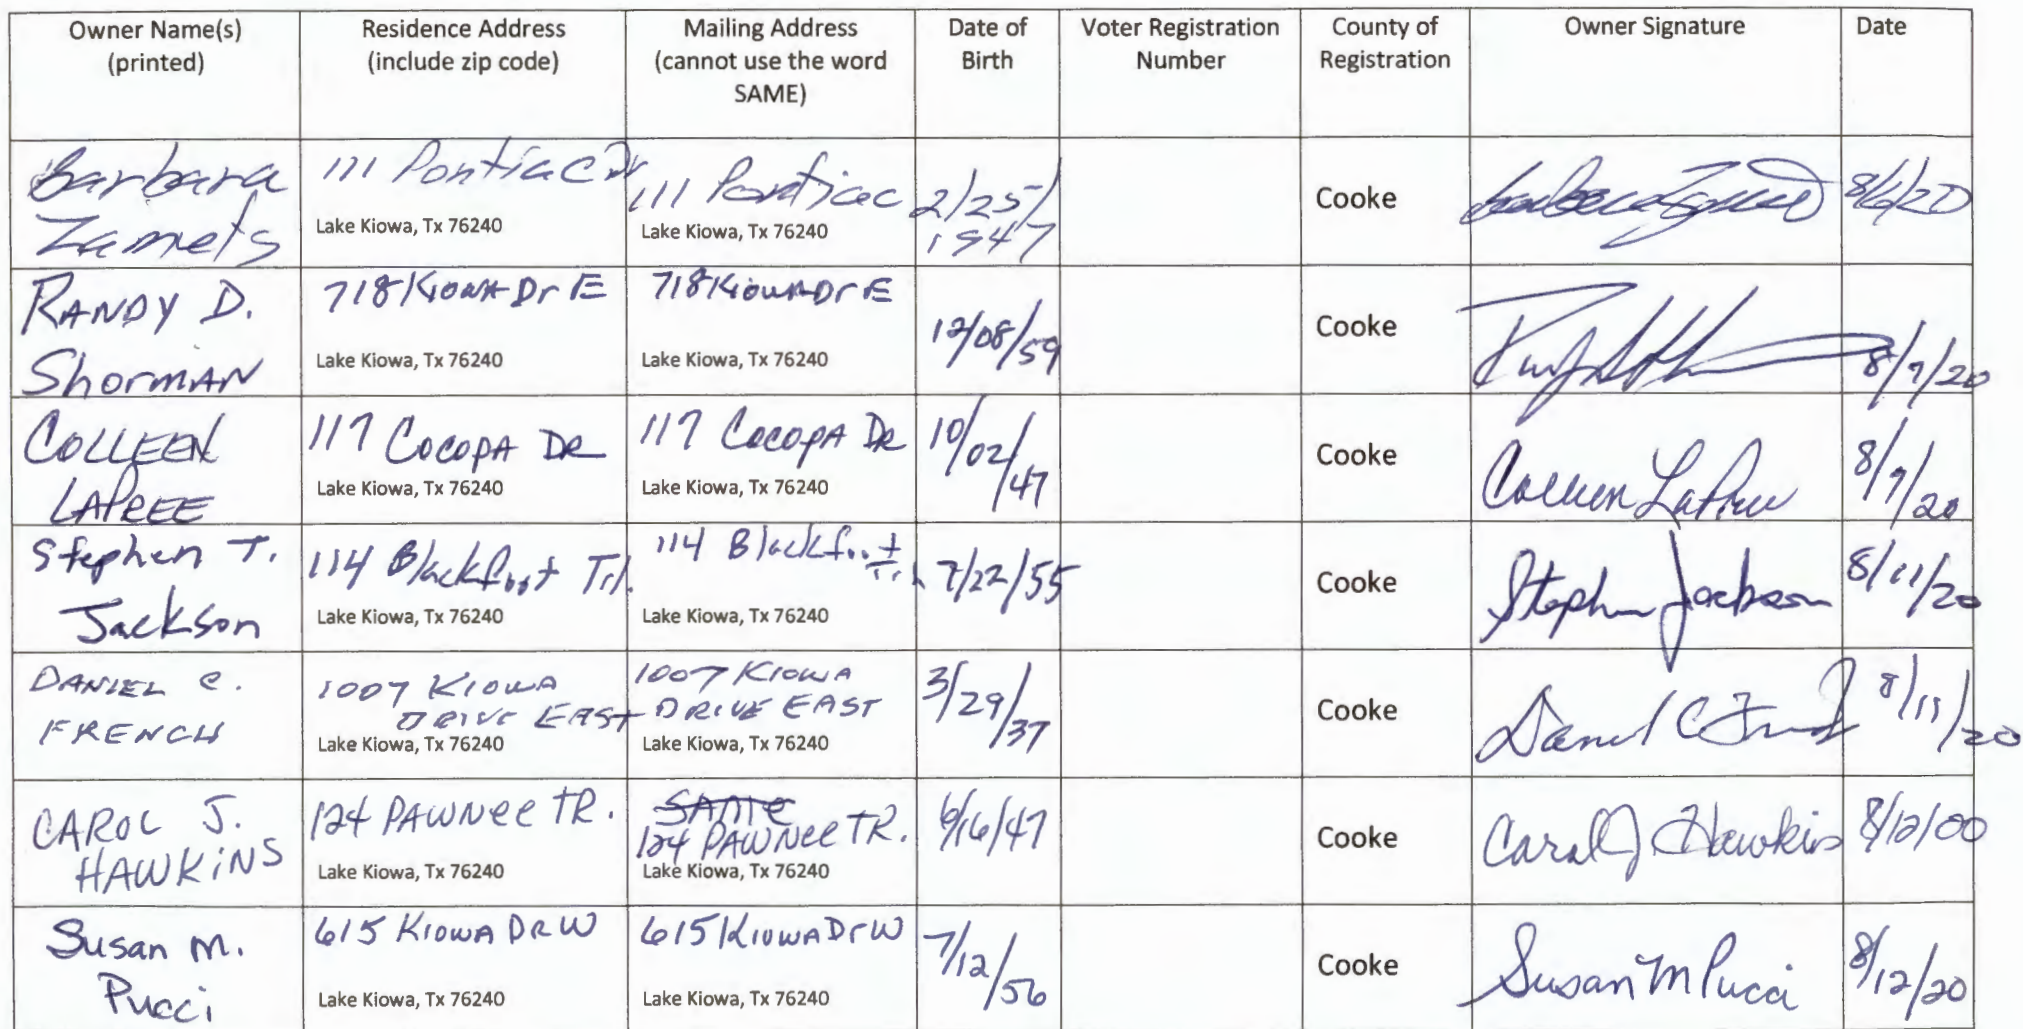 Owner Name(s) (printed) Residence Address (include zip code) Mailing Address (cannot use the word SAME) Date of Birth Voter Registration Number County of Registration Owner Signature Date
Barbara Zamets 111 Pontiac Dr Lake Kiowa, Tx 76240 111 Pontiac Lake Kiowa, Tx 76240 2/25/1947 Cooke 8/6/20
RANDY D. ShormAN 718 Kiowa Dr E Lake Kiowa, Tx 76240 718 Kiowa Dr E Lake Kiowa, Tx 76240 12/08/59 Cooke 8/7/20
COLLEEN LAPREE 117 Cocopa DR Lake Kiowa, Tx 76240 117 Cocopa DR Lake Kiowa, Tx 76240 10/02/47 Cooke Colleen LaPree 8/7/20
Stephen T. Jackson 114 Blackfoot Trl. Lake Kiowa, Tx 76240 114 Blackfoot Trl. Lake Kiowa, Tx 76240 7/22/55 Cooke Stephen Jackson 8/11/20
DANIEL C. FRENCH 1007 KIOWA DRIVE EAST Lake Kiowa, Tx 76240 1007 KIOWA DRIVE EAST Lake Kiowa, Tx 76240 3/29/37 Cooke Daniel C French 8/11/20
CAROL J. HAWKINS 124 PAWNee TR. Lake Kiowa, Tx 76240 SAME 124 PAWNee TR. Lake Kiowa, Tx 76240 6/16/47 Cooke Carol J Hawkins 8/12/00
Susan M. Pucci 615 KIOWA DR W Lake Kiowa, Tx 76240 615 KIOWA Dr W Lake Kiowa, Tx 76240 7/12/56 Cooke Susan M Pucci 8/12/20